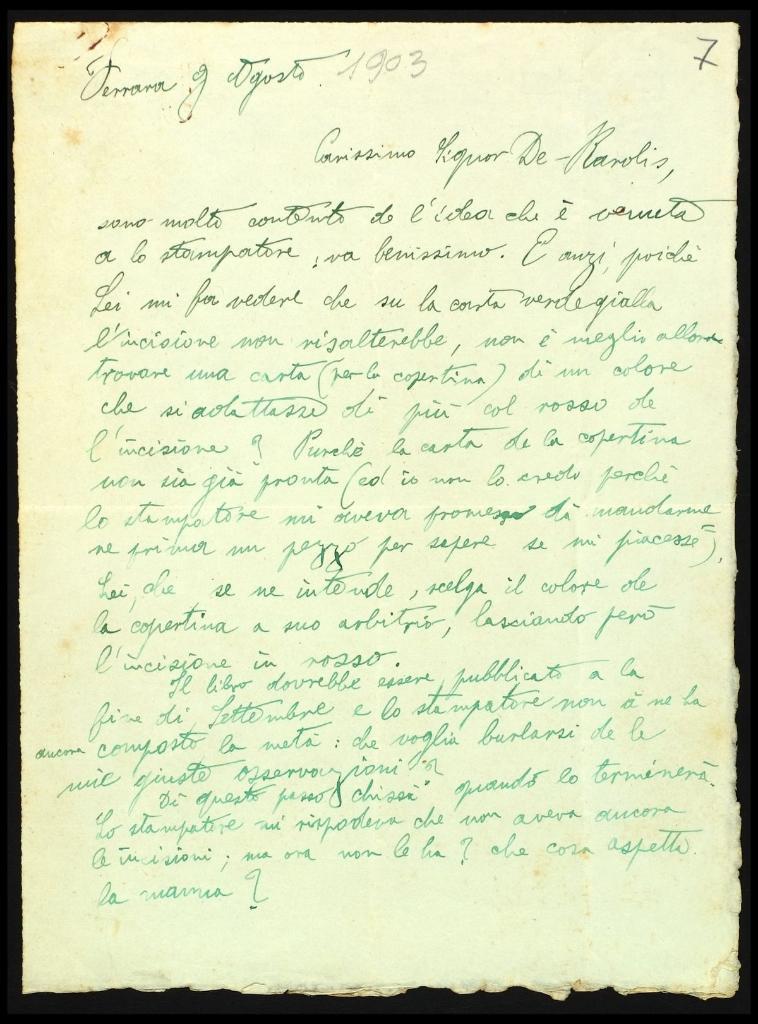 7
Ferrara 9 Agosto 1903
Carissimo Signor De-Karolis,
sono molto contento de l'idea che è venuta
a lo stampatore, va benissimo. E anzi, poichè
Lei mi fa vedere che su la carta verdegialla
l'incisione non risalterebbe, non è meglio allora
trovare una carta (per la copertina) di un colore
che si adattasse di più col rosso de
l'incisione? Purchè la carta de la copertina
non sia già pronta (ed io non lo credo perchè
lo stampatore mi aveva promesso di mandarme
ne prima un pezzo per sapere se mi piacesse),
Lei, che se ne intende, scelga il colore de
la copertina a suo arbitrio, lasciando però
l'incisione in rosso.
Il libro dovrebbe essere pubblicato a la
fine di Settembre e lo stampatore non à ne ha
ancora composto la metà: che voglia burlarsi de le
mie giuste osservazioni?
Di questo passo chissà quando lo terminerà.
Lo stampatore mi rispodeva che non aveva ancora
le incisioni; ma ora non le ha? che cosa aspetta
la manna?